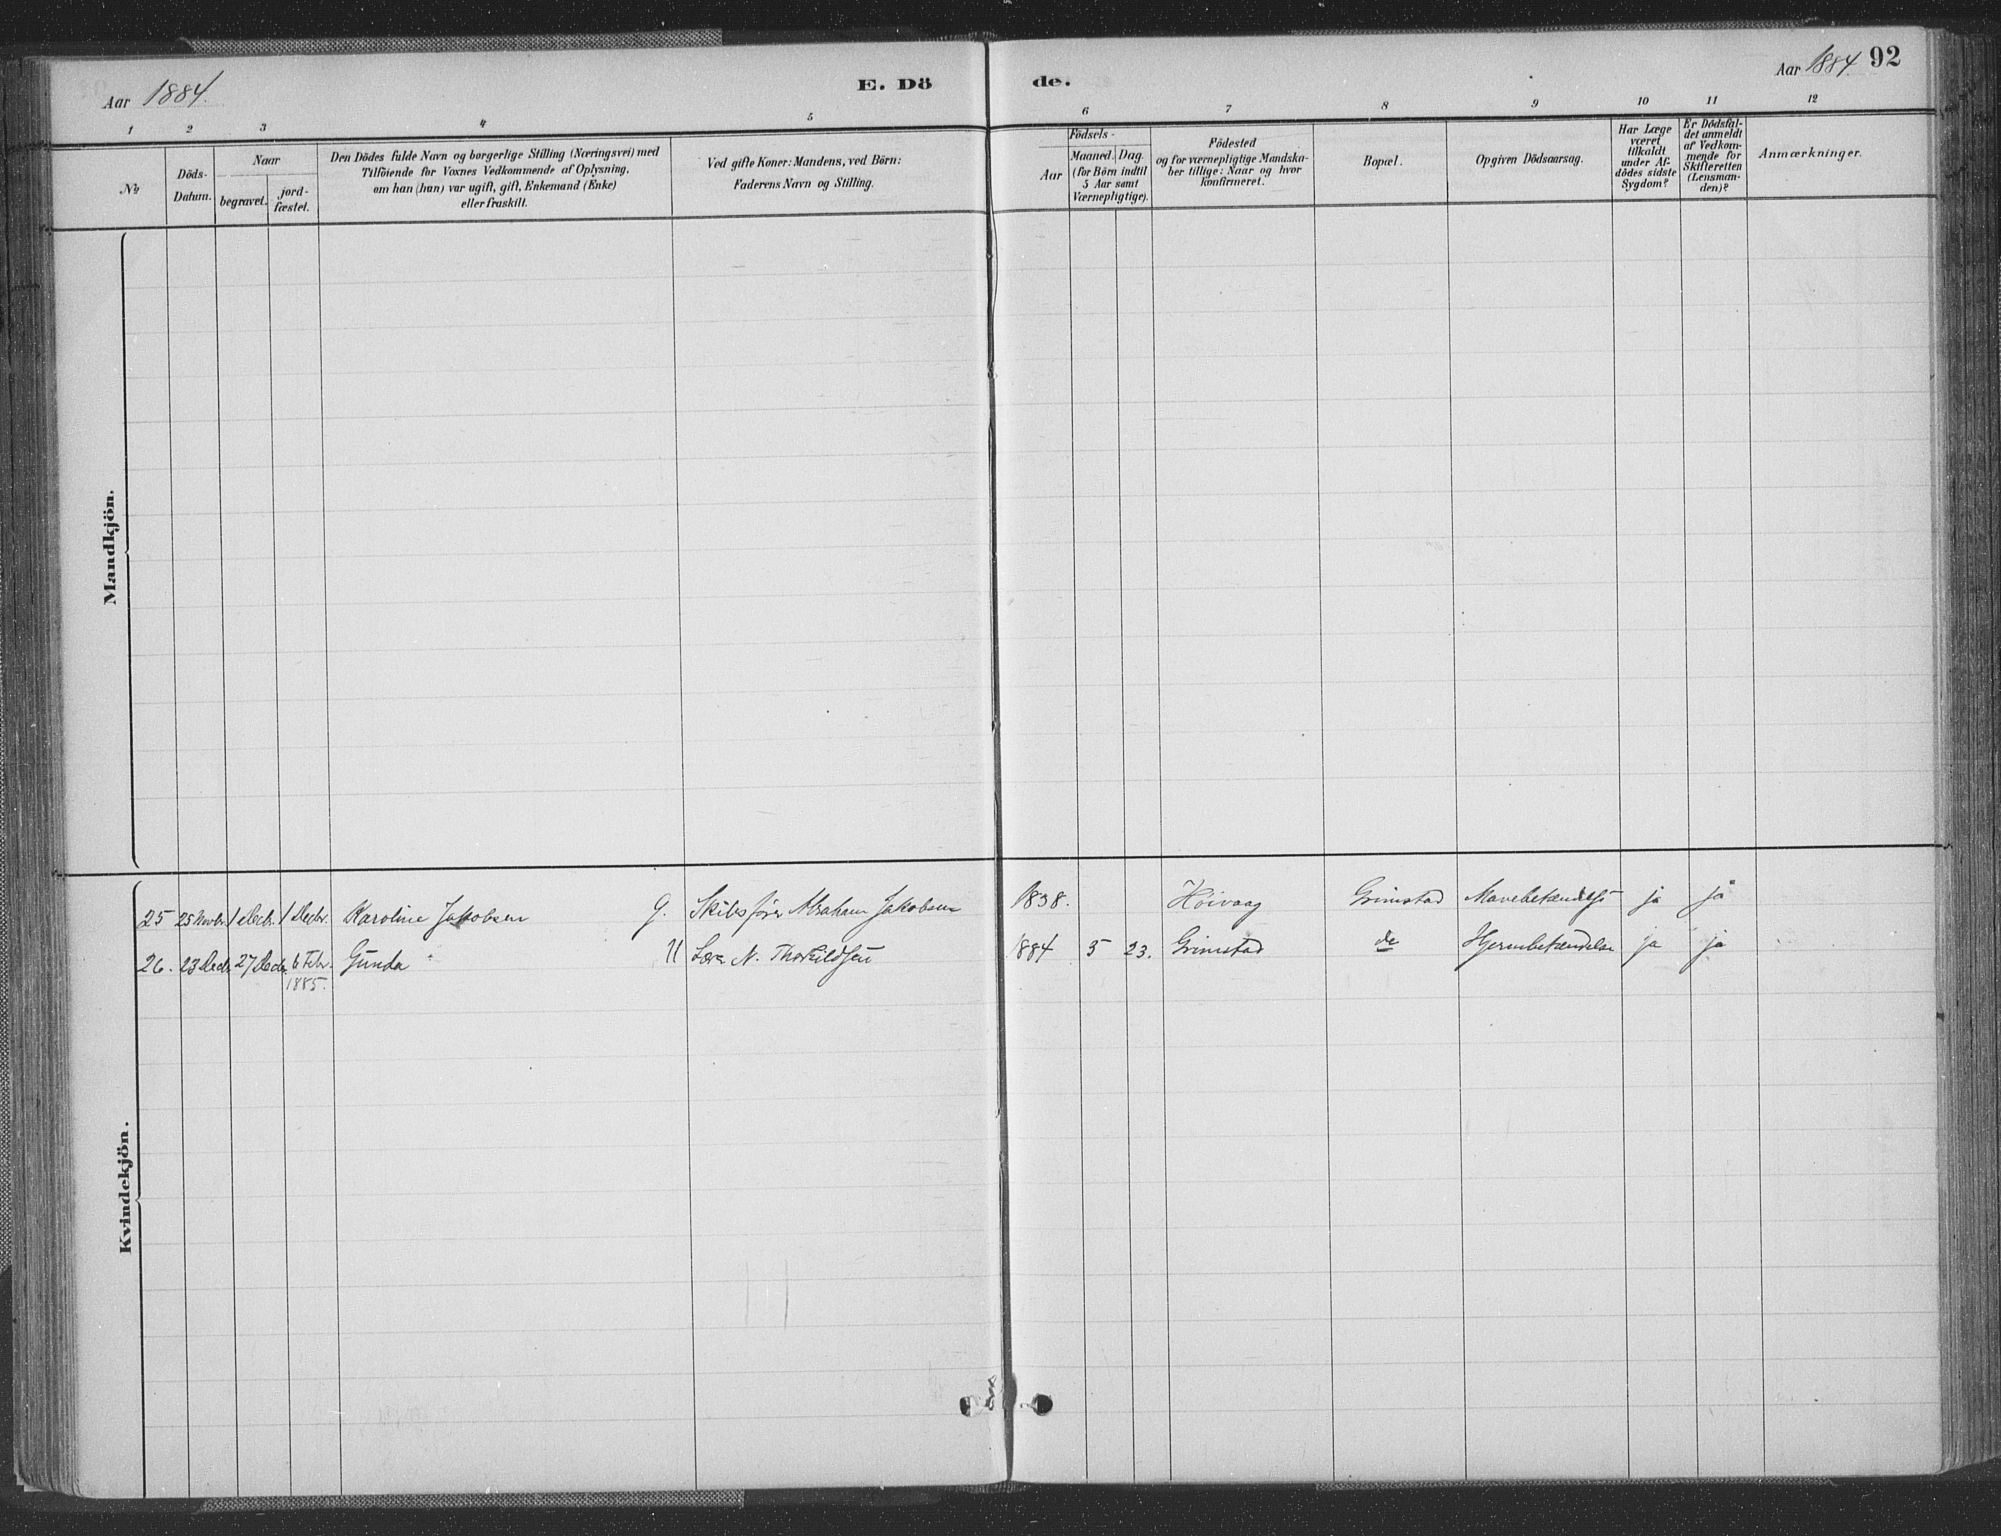 Aar 1884.
E. Dö
de.
Aar 1884. 92
1 2 3 4 5 6 7 8 9 10 11 12
№
Döds-
Datum.
Naar
begravet.
jord-
fæstet.
Den Dödes fulde Navn og borgerlige Stilling (Næringsvei) med
Tilföiende for Voxnes Vedkommende af Oplysning,
om han (hun) var ugift, gift, Enkemand (Enke)
eller fraskilt.
Ved gifte Koner: Mandens, ved Börn:
Faderens Navn og Stilling.
Födsels-
Aar
Maaned. Dag.
(for Börn indtil
5 Aar samt
Værnepligtige).
Födested
og for værnepligtige Mandska-
ber tillige: Naar og hvor
konfirmeret.
Bopæl.
Opgiven Dödsaarsag.
Har Læge
været
tilkaldt
under Af-
dödes sidste
Sygdom?
Er Dödsfal-
det anmeldt
af Vedkom-
mende for
Skifteretten
(Lensman-
den)?
Anmærkninger.
Mandkjön.
Kvindekjön.
25 25 Novbr. 1 Decbr. 1 Decbr. Karoline Jakobsen g. Skibsfører Abraham Jakobsen 1838. Höivaag Grimstad Mavebetændelse ja ja
26. 23 Decbr. 27 Decbr. 6 Febr. Gunda U N. Thorkildsen 1884 5 23. Grimstad do Hjernebetændelse ja ja
1885.